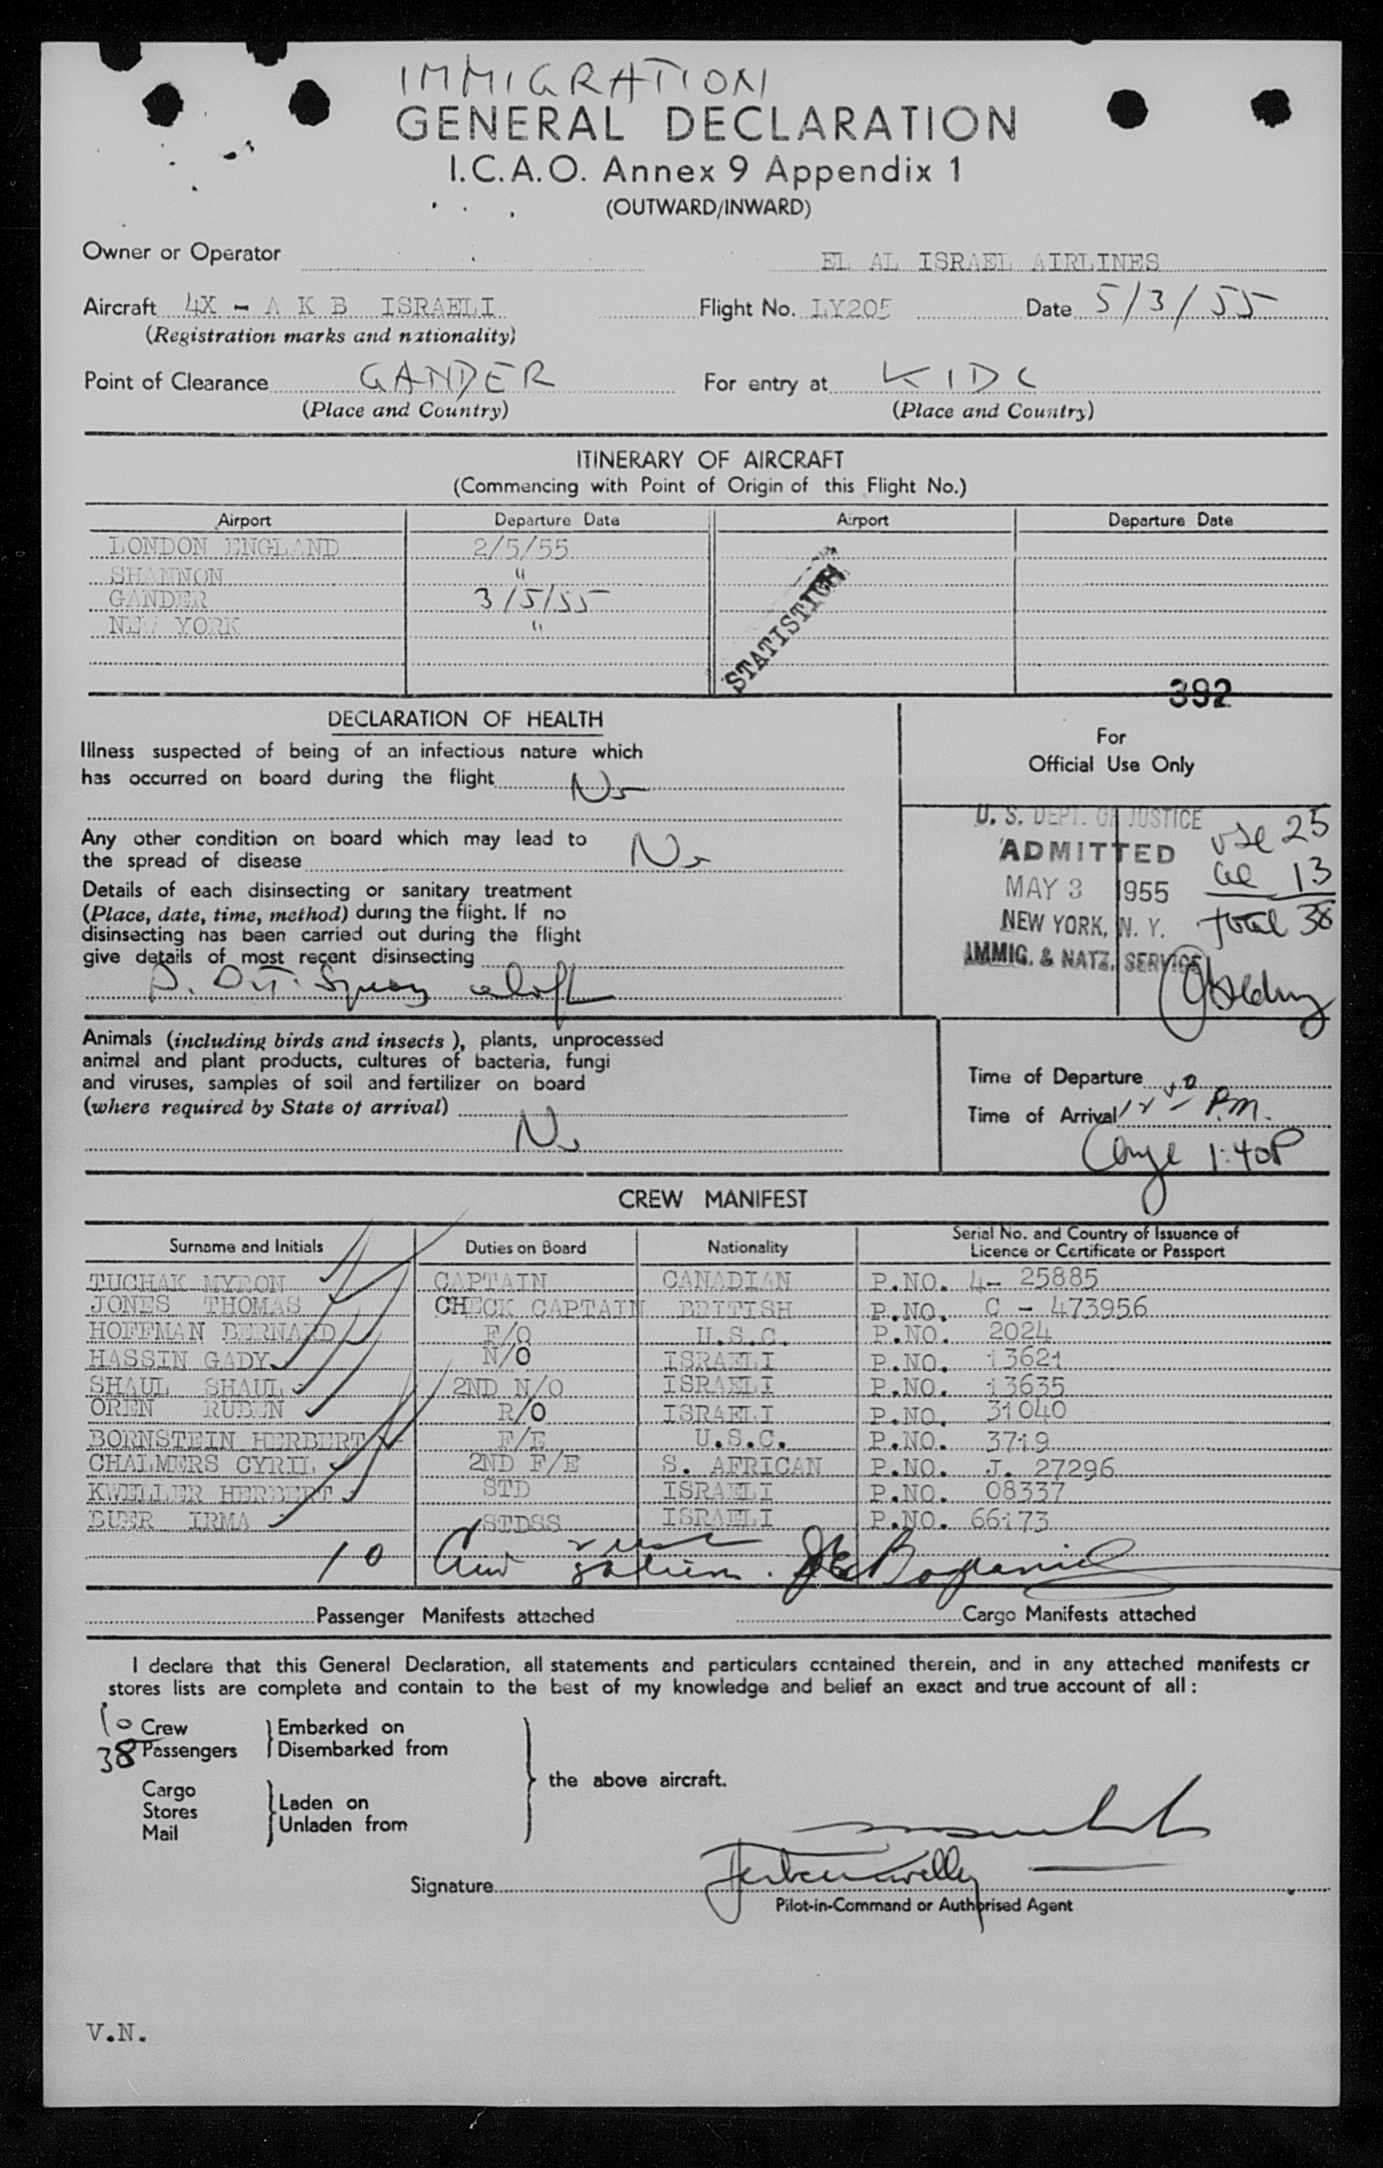 IMMIGRATION
GENERAL DECLARATION
I.C.A.O. Annex 9 Appendix 1
(OUTWARD/INWARD)
Owner or Operator EL AL ISRAEL AIRLINES
Aircraft 4X - A K B ISRAELI Flight No. LY205 Date 5/3/55
(Registration marks and nationality)
Point of Clearance GANDER For entry at KIDC
(Place and Country) (Place and Country)
ITINERARY OF AIRCRAFT
(Commencing with Point of Origin of this Flight No.)
Airport Departure Date Airport Departure Date
LONDON ENGLAND 2/5/55
SHANNON "
GANDER 3/5/55
NEW YORK "
STATISTICH
392
DECLARATION OF HEALTH
Illness suspected of being of an infectious nature which
has occurred on board during the flight No
Any other condition on board which may lead to
the spread of disease No
Details of each disinsecting or sanitary treatment
(Place, date, time, method) during the flight. If no
disinsecting has been carried out during the flight
give details of most recent disinsecting
D.D.T. Spray aloft
For
Official Use Only
U. S. DEPT. OF JUSTICE
ADMITTED
MAY 3 1955
NEW YORK, N. Y.
IMMIG. & NATZ. SERVICE
usc 25
al 13
total 38
Animals (including birds and insects ), plants, unprocessed
animal and plant products, cultures of bacteria, fungi
and viruses, samples of soil and fertilizer on board
(where required by State of arrival)
No
Time of Departure
Time of Arrival P.M.
1:40P
CREW MANIFEST
Surname and Initials Duties on Board Nationality Serial No. and Country of Issuance of
Licence or Certificate or Passport
TUCHAK MYRON CAPTAIN CANADIAN P.NO. 4- 25885
JONES THOMAS CHECK CAPTAIN BRITISH P.NO. C - 473956
HOFFMAN BERNARD F/O U.S.C. P.NO. 2024
HASSIN GADY N/O ISRAELI P.NO. 13621
SHAUL SHAUL 2ND N/O ISRAELI P.NO. 13635
OREN RUBEN R/O ISRAELI P.NO. 31040
BORNSTEIN HERBERT F/E U.S.C. P.NO. 3719
CHALMERS CYRIL 2ND F/E S. AFRICAN P.NO. J. 27296
KWELLER HERBERT STD ISRAELI P.NO. 08337
BUER IRMA STDSS ISRAELI P.NO. 66173
10
Passenger Manifests attached Cargo Manifests attached
I declare that this General Declaration, all statements and particulars contained therein, and in any attached manifests or
stores lists are complete and contain to the best of my knowledge and belief an exact and true account of all :
10 Crew Embarked on
38 Passengers Disembarked from
the above aircraft.
Cargo
Stores Laden on
Mail Unladen from
Signature
Pilot-in-Command or Authorised Agent
V.N.